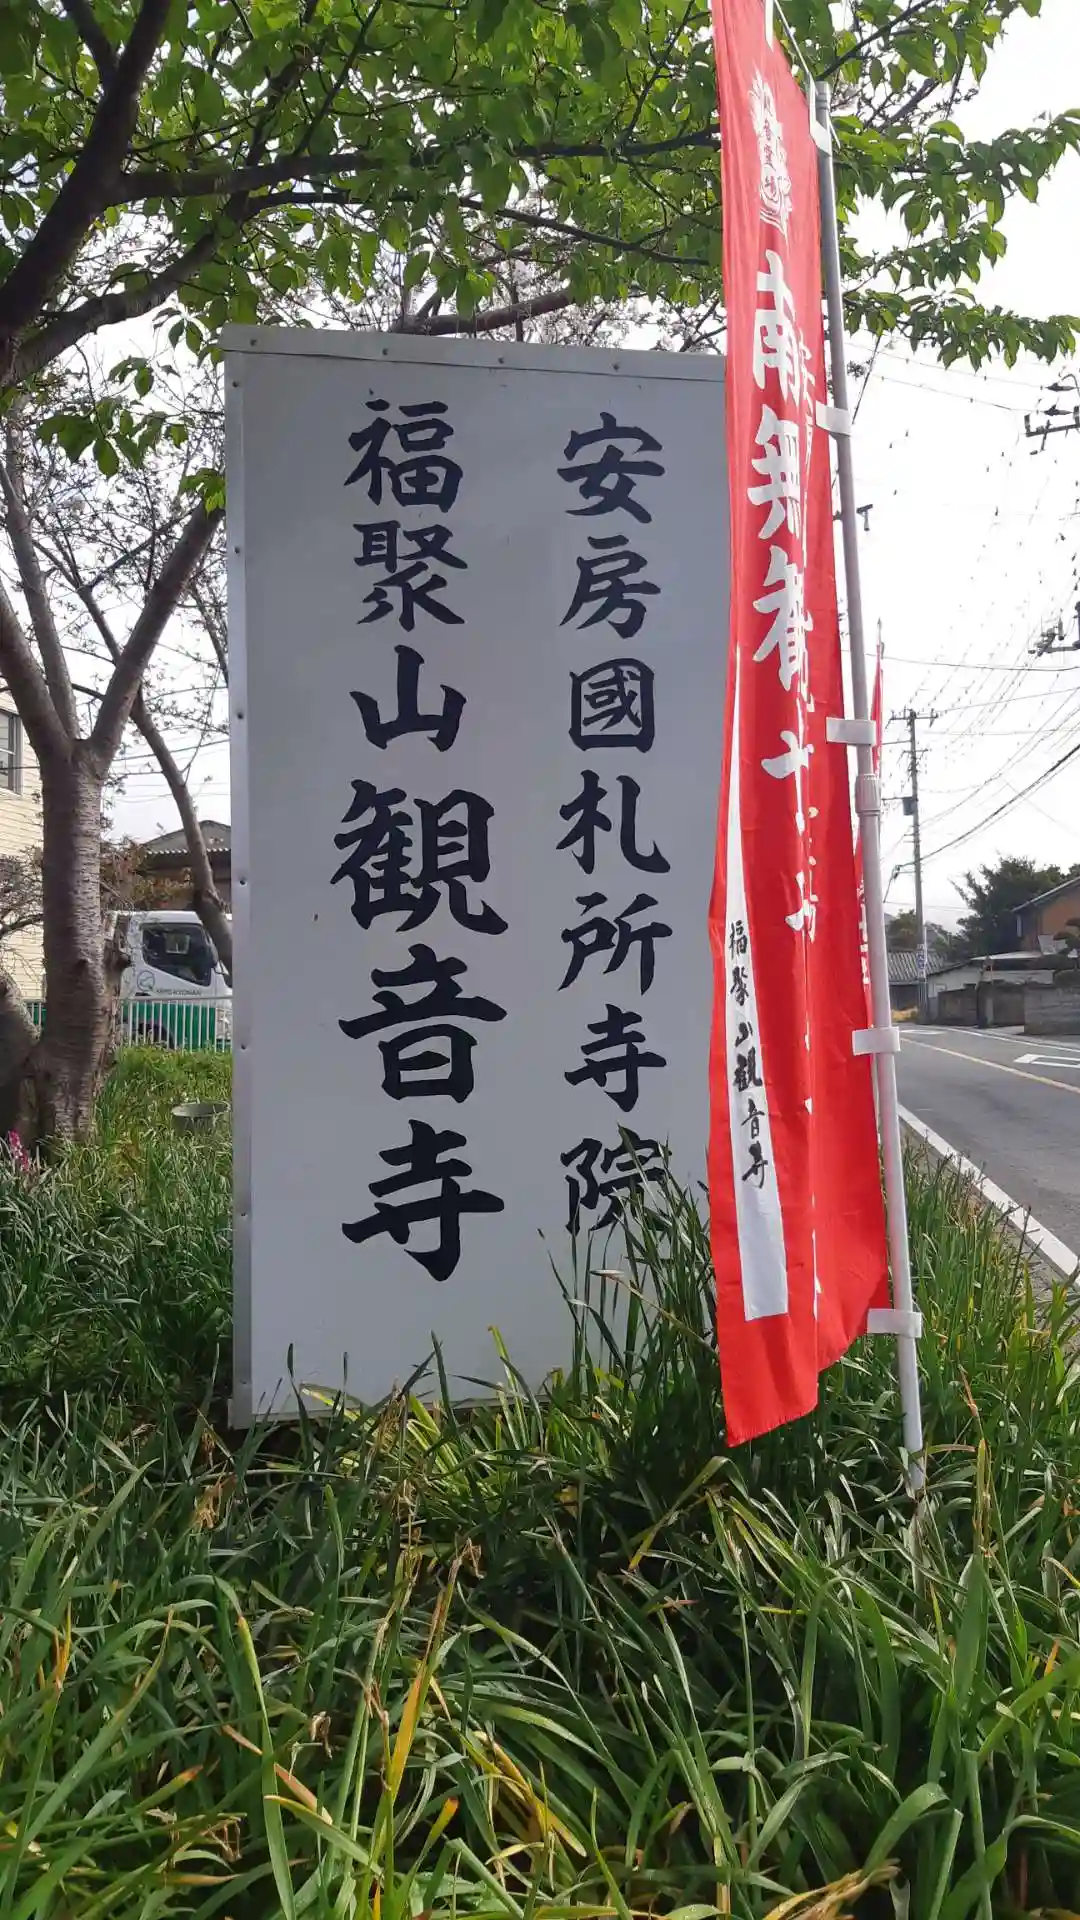 安房國札所寺院
福聚山観音寺
南無観
福聚山観音寺